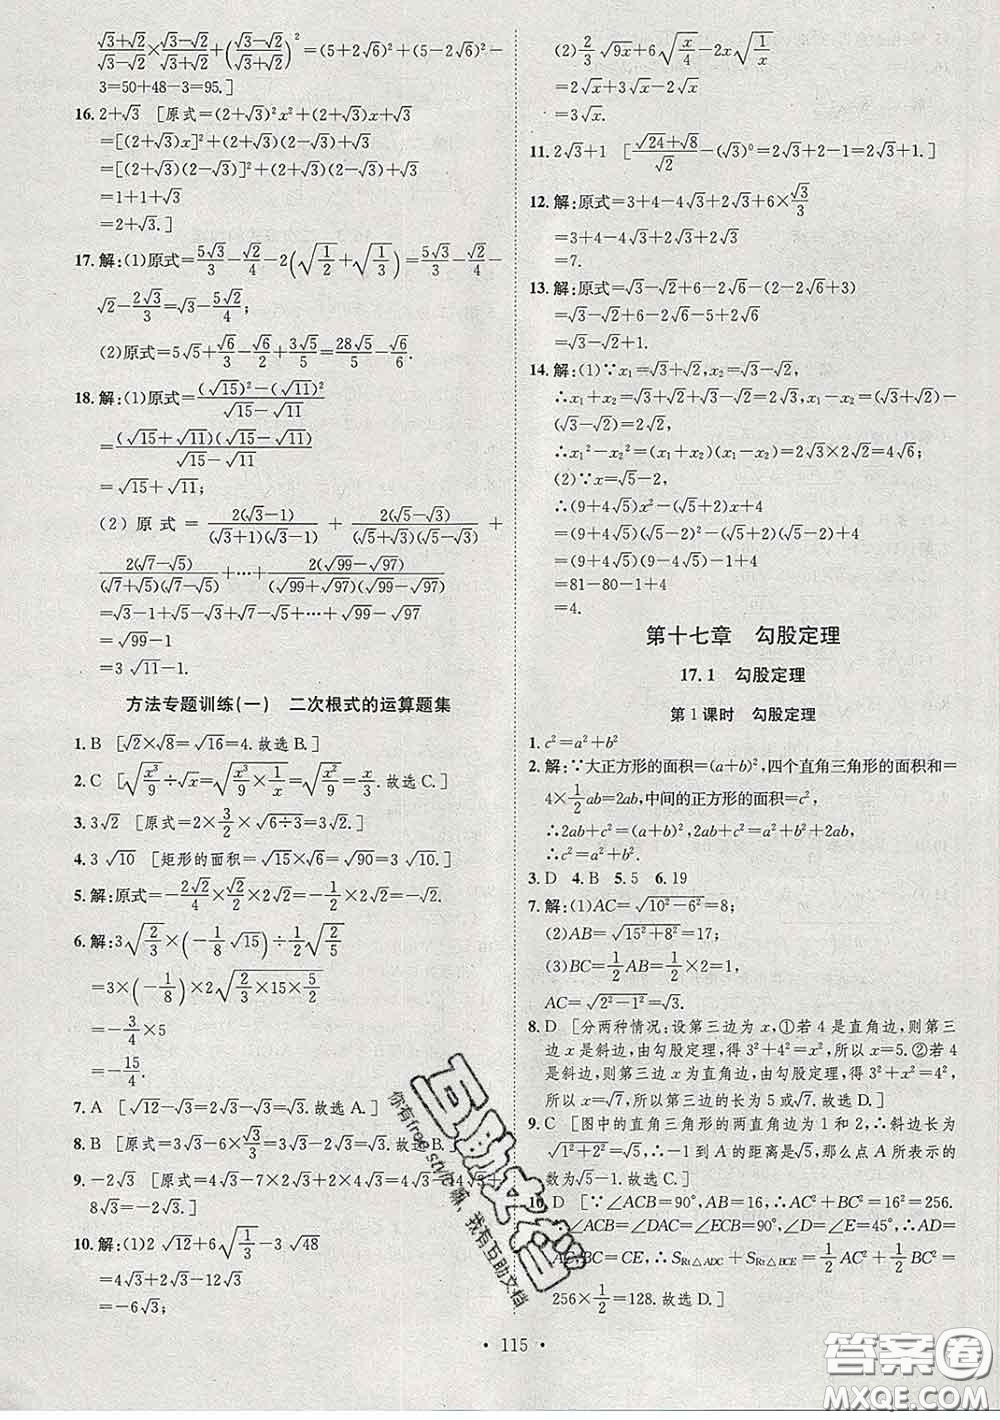 (√3+√2)/(√3-√2)×(√3-√2)/(√3+√2)+((√3-√2)/(√3+√2))²=(5+2√6)²+(5-2√6)²-
3=50+48-3=95.]
16. 2+√3 [原式=(2+√3)²x²+(2+√3)x+√3
=[(2+√3)x]²+(2+√3)(2-√3)+√3
=[(2+√3)(2-√3)]²+(2+√3)(2-√3)+√3
=1+1+√3
=2+√3.]
17. 解:(1)原式=5√3/3-√2/4-2(√(1/2)+√(1/3))=5√3/3-√2/4-
√2-2√3/3=√3-5√2/4;
(2)原式=5√5+√6/3-√6/2+3√5/5=28√5/5-√6/6.
18. 解:(1)原式=((√15)²-(√11)²)/(√15-√11)
=(√15+√11)(√15-√11)/(√15-√11)
=√15+√11;
(2)原式=2(√3-1)/((√3+1)(√3-1))+2(√5-√3)/((√5+√3)(√5-√3))+
2(√7-√5)/((√7+√5)(√7-√5))+…+2(√99-√97)/((√99+√97)(√99-√97))
=√3-1+√5-√3+√7-√5+…+√99-√97
=√99-1
=3√11-1.
方法专题训练(一) 二次根式的运算题集
1. B [√2×√8=√16=4.故选B.]
2. C [√(x³/9)÷√x=√(x³/9×1/x)=√(x²/9)=x/3.故选C.]
3. 3√2 [原式=2×3/2×√(6÷3)=3√2.]
4. 3√10 [矩形的面积=√15×√6=√90=3√10.]
5. 解:原式=-2√2/4×2√2/2×2√2=-1/2×2√2=-√2.
6. 解:3√(2/3)×(-1/8√15)÷1/2√(2/5)
=3×(-1/8)×2√(2/3×15×5/2)
=-3/4×5
=-15/4.
7. A [√12-√3=2√3-√3=√3.故选A.]
8. B [原式=3√3-6×√3/3=3√3-2√3=√3.故选B.]
9. -2√3 [原式=4√3-7×2√3+2×4√3=4√3-14√3+
8√3=-2√3.]
10. 解:(1)2√12+6√(1/3)-3√48
=4√3+2√3-12√3
=-6√3;
(2)2/3√(9x)+6√(x/4)-2x√(1/x)
=2√x+3√x-2√x
=3√x.
11. 2√3+1 [(√24+√8)/√2-(√3)⁰=2√3+2-1=2√3+1.]
12. 解:原式=3+4-4√3+2√3+6×√3/3
=3+4-4√3+2√3+2√3
=7.
13. 解:原式=√3-√2+6-2√6-(2-2√6+3)
=√3-√2+6-2√6-5+2√6
=√3-√2+1.
14. 解:(1)∵x₁=√3+√2,x₂=√3-√2,
∴x₁+x₂=√3+√2+√3-√2=2√3,x₁-x₂=(√3+√2)-
(√3-√2)=2√2,
∴x₁²-x₂²=(x₁+x₂)(x₁-x₂)=2√3×2√2=4√6;
(2)∵x=√5-2,
∴(9+4√5)x²-(√5+2)x+4
=(9+4√5)(√5-2)²-(√5+2)(√5-2)+4
=(9+4√5)(9-4√5)-1+4
=81-80-1+4
=4.
第十七章 勾股定理
17.1 勾股定理
第1课时 勾股定理
1. c²=a²+b²
2. 解:∵大正方形的面积=(a+b)²,四个直角三角形的面积和=
4×1/2ab=2ab,中间的正方形的面积=c²,
∴2ab+c²=(a+b)²,2ab+c²=a²+b²+2ab,
∴c²=a²+b².
3. D 4. B 5. 5 6. 19
7. 解:(1)AC=√(10²-6²)=8;
(2)AB=√(15²+8²)=17;
(3)BC=1/2AB=1/2×2=1,
AC=√(2²-1²)=√3.
8. D [分两种情况:设第三边为x,①若4是直角边,则第三
边x是斜边,由勾股定理,得3²+4²=x²,所以x=5.②若4
是斜边,则第三边x为直角边,由勾股定理,得3²+x²=4²,
所以x=√7,所以第三边的长为5或√7.故选D.]
9. C [图中的直角三角形的两直角边为1和2,∴斜边长为
√(1²+2²)=√5,∴-1到A的距离是√5,那么点A所表示的
数为√5-1.故选C.]
10. D [∵∠ACB=90°,AB=16,∴AC²+BC²=16²=256.
∵∠ACB=∠DAC=∠ECB=90°,∠D=∠E=45°,∴AD=
AC,BC=CE,∴S Rt△ADC+S Rt△BCE=1/2AC²+1/2BC²=
256×1/2=128.故选D.]
115
互助文档
你有free style嘛,我有互助文档
答案圈
MXQE.COM